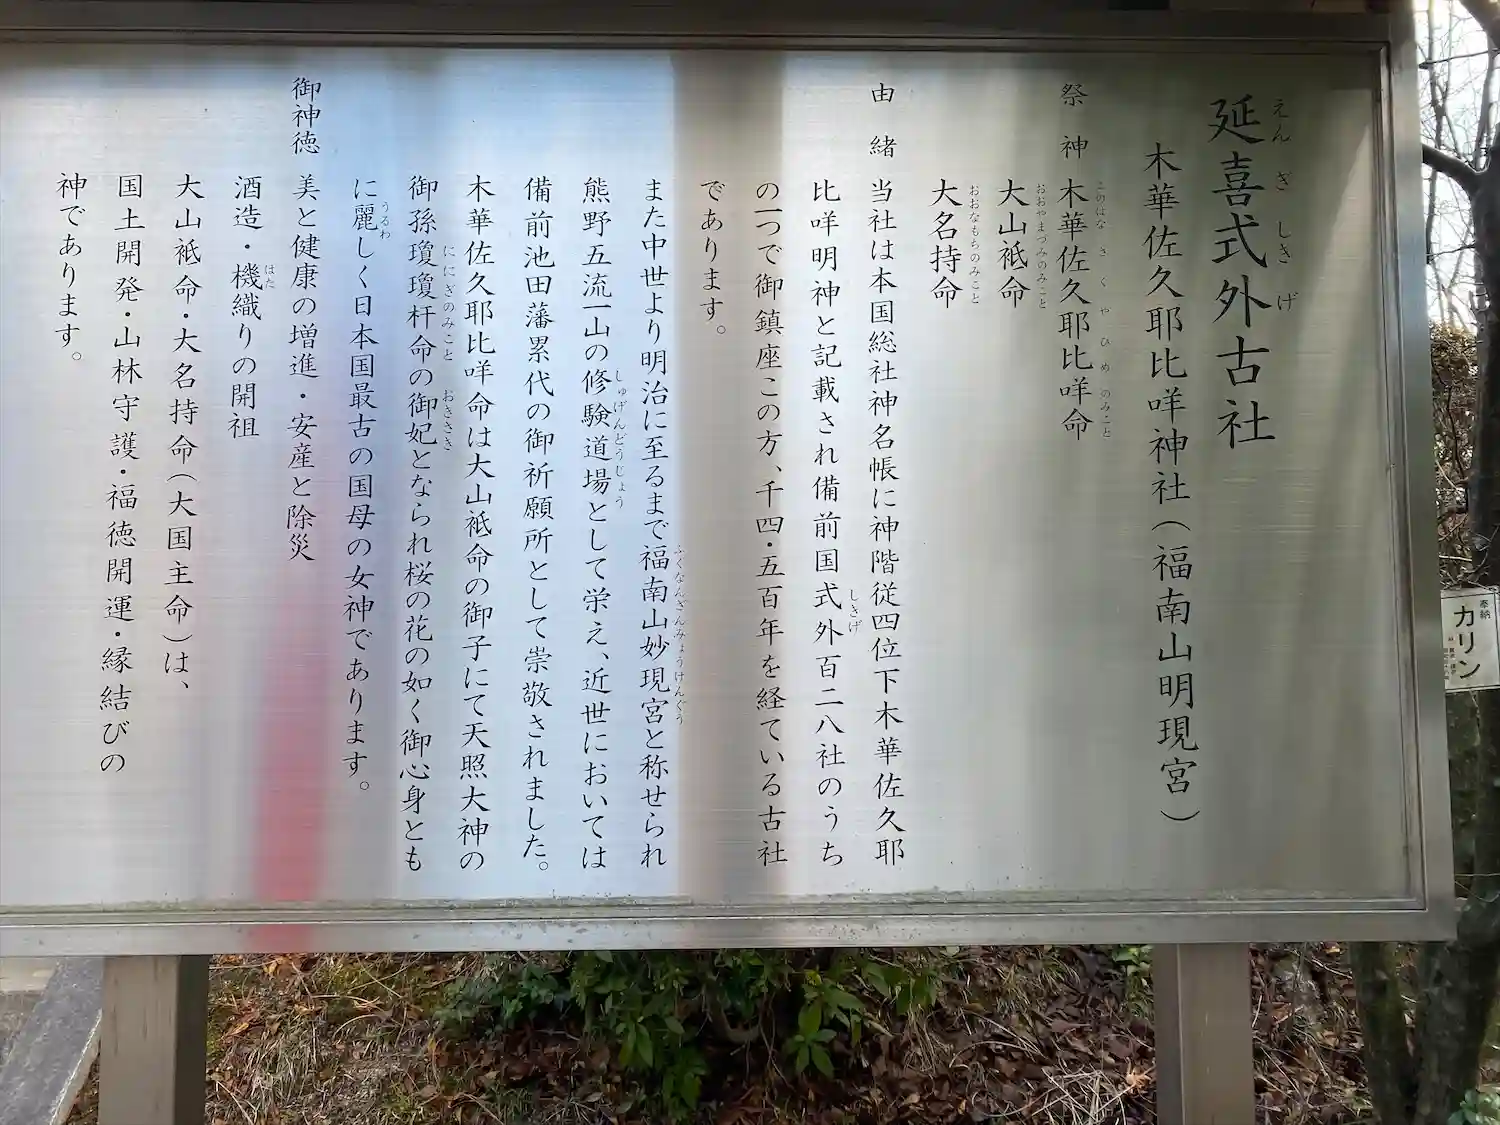 延喜式外古社
えんぎしきげ
木華佐久耶比咩神社(福南山明現宮)
祭神 木華佐久耶比咩命
このはなさくやひめのみこと
大山祗命
おおやまづみのみこと
大名持命
おおなもちのみこと
由緒 当社は本国総社神名帳に神階従四位下木華佐久耶
比咩明神と記載され備前国式外百二八社のうち
しきげ
の一つで御鎮座この方、千四・五百年を経ている古社
であります。
また中世より明治に至るまで福南山妙現宮と称せられ
ふくなんざんみょうけんぐう
熊野五流一山の修験道場として栄え、近世においては
しゅげんどうじょう
備前池田藩累代の御祈願所として崇敬されました。
木華佐久耶比咩命は大山祗命の御子にて天照大神の
御孫瓊瓊杵命の御妃となられ桜の花の如く御心身とも
ににぎのみこと おきさき
に麗しく日本国最古の国母の女神であります。
うるわ
御神徳 美と健康の増進・安産と除災
酒造・機織りの開祖
はた
大山祗命・大名持命(大国主命)は、
国土開発・山林守護・福徳開運・縁結びの
神であります。
奉納
カリン